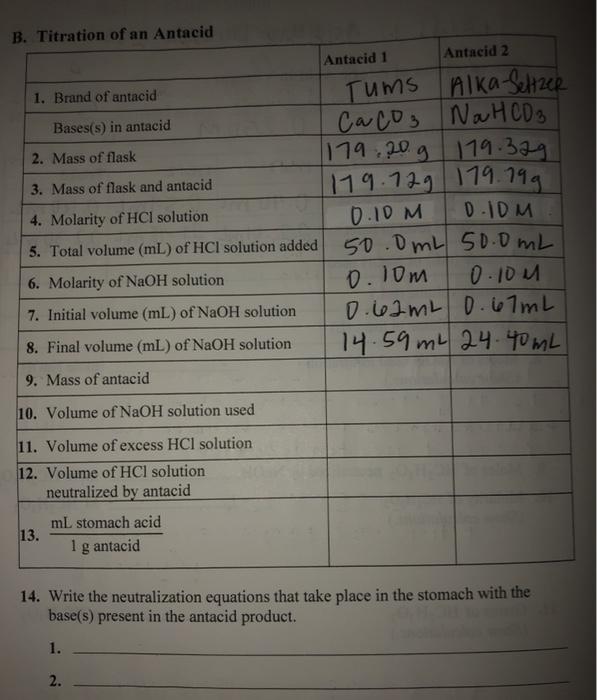 B. Titration of an Antacid
Antacid 1 Antacid 2
1. Brand of antacid Tums Alka-Seltzer
Bases(s) in antacid CaCO3 NaHCO3
2. Mass of flask 179.20 g 179.32g
3. Mass of flask and antacid 179.72g 179.79g
4. Molarity of HCl solution 0.10 M 0.10 M
5. Total volume (mL) of HCl solution added 50.0 mL 50.0 mL
6. Molarity of NaOH solution 0.10m 0.10 M
7. Initial volume (mL) of NaOH solution 0.62mL 0.67mL
8. Final volume (mL) of NaOH solution 14.59 mL 24.40 mL
9. Mass of antacid
10. Volume of NaOH solution used
11. Volume of excess HCl solution
12. Volume of HCl solution
neutralized by antacid
13. mL stomach acid
1 g antacid
14. Write the neutralization equations that take place in the stomach with the
base(s) present in the antacid product.
1.
2.